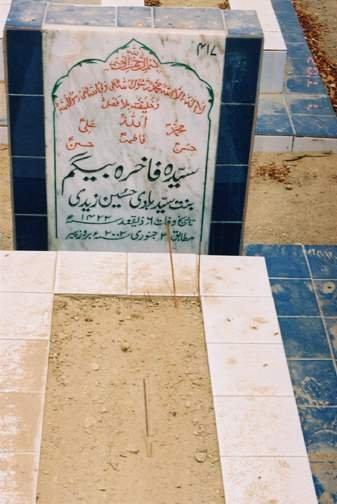 ۴۱۷
بسم اللہ الرحمن الرحیم
لا الہ الا اللہ محمد رسول اللہ علی ولی اللہ وصی رسول اللہ
وخلیفتہ بلا فصل
اللہ
محمد علی
فاطمہ
حسن حسین
سیدہ فاخرہ بیگم
بنت سید ہادی حسین زیدی
تاریخ وفات ۶ ذیقعد ۱۴۲۲ھ
مطابق جنوری ۲۰۰۲ء بروز پیر